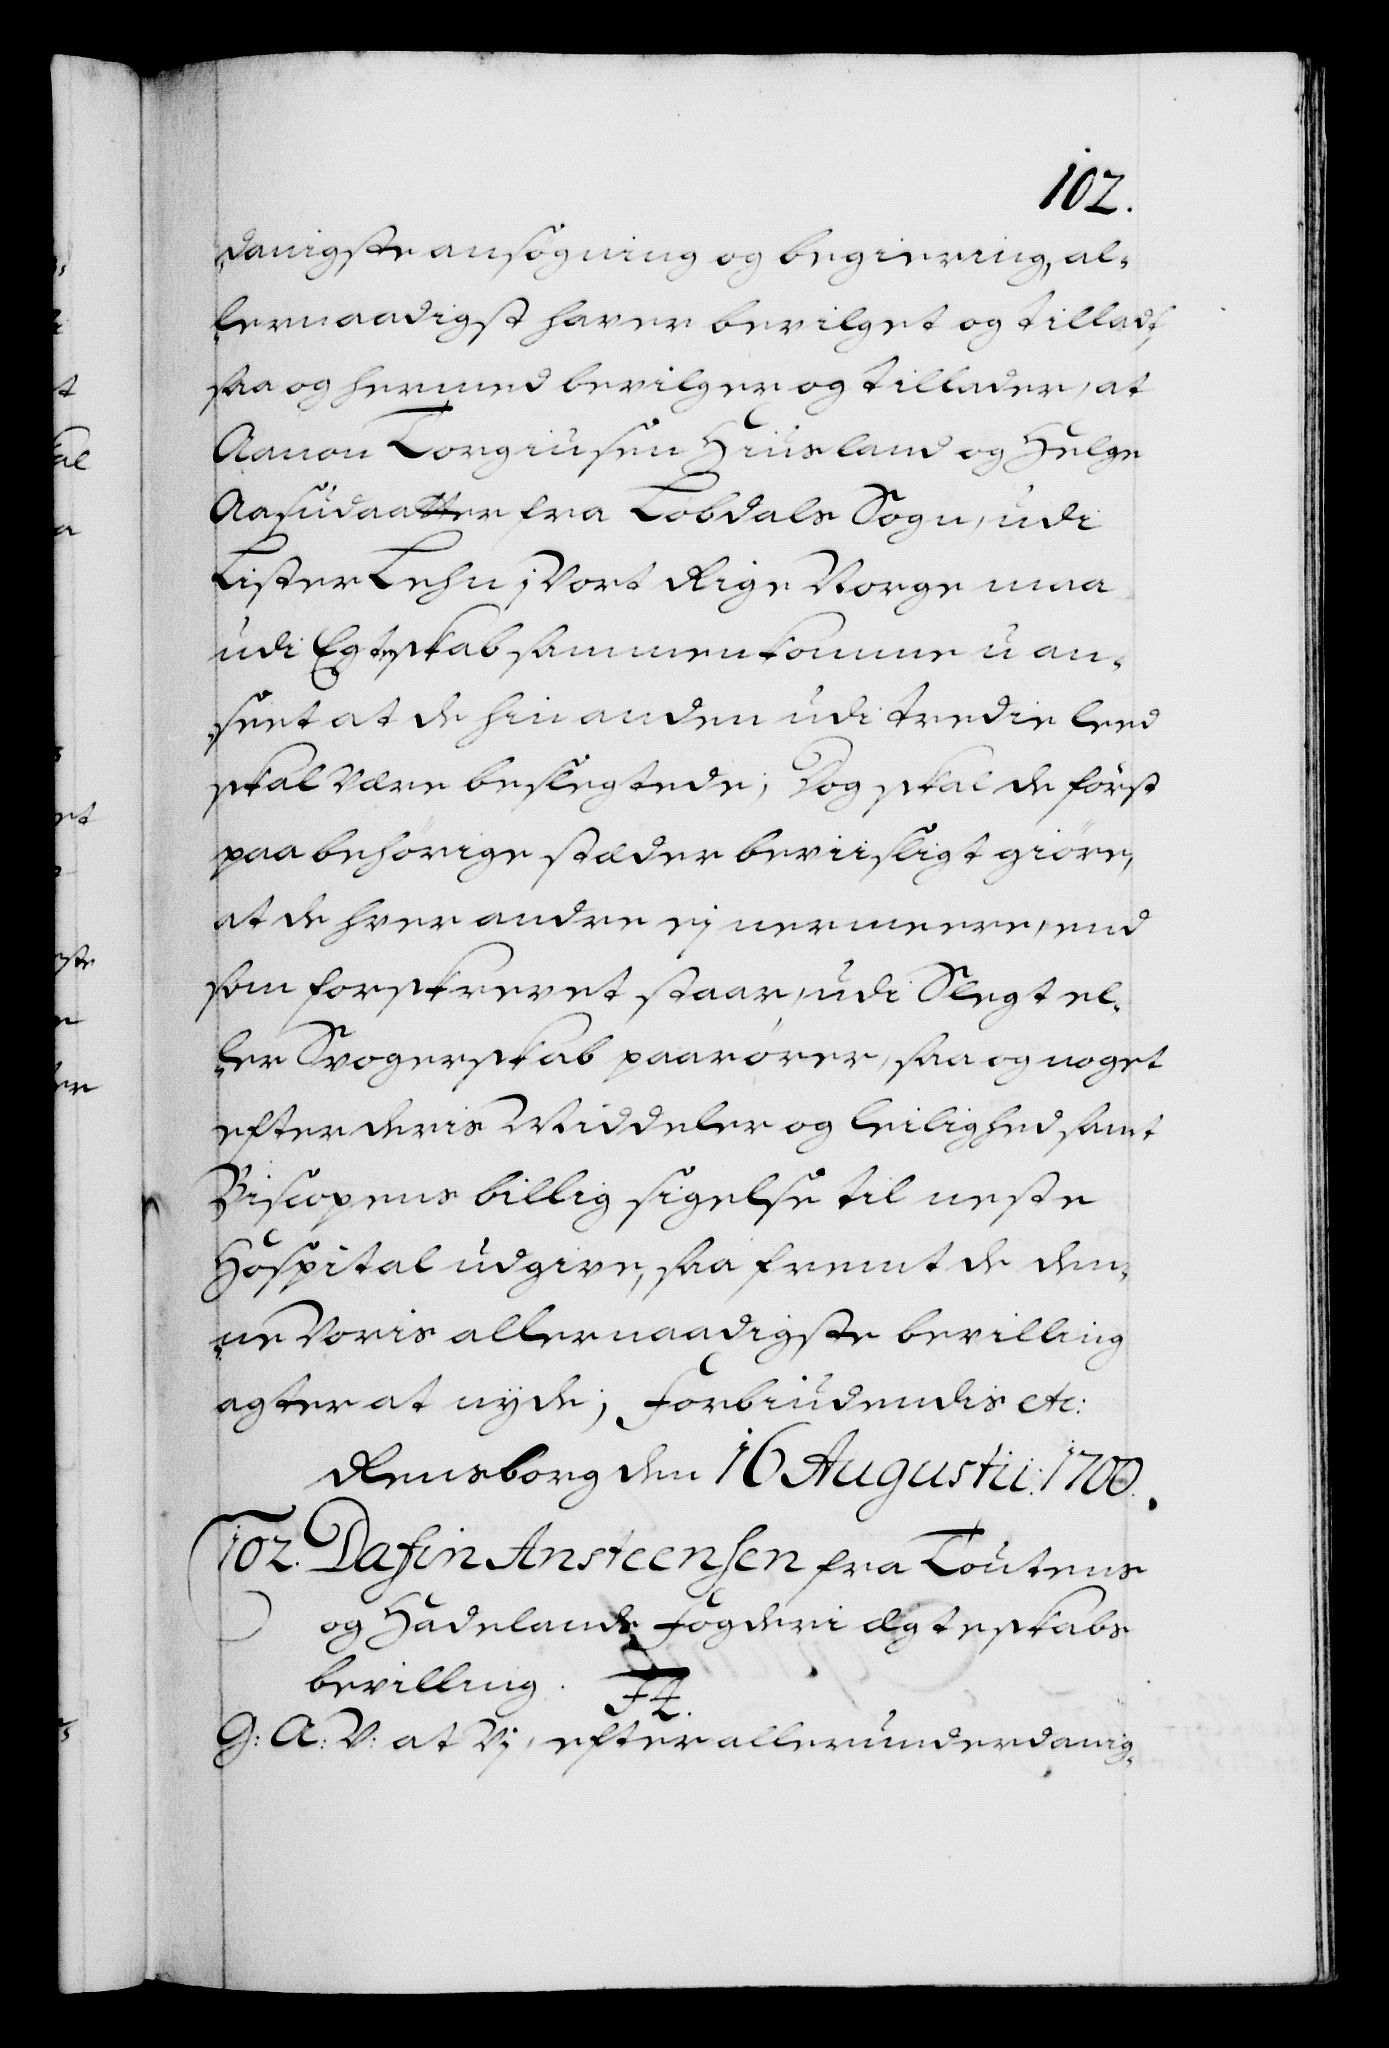 102.
danigste ansögning og begiering, al-
lernaadigst haver bevilget og tilladt,
saa og hermed bevilger og tillader, at
Aanon Torgiusen Hiusland og Helge
Aasudaatter fra Lobdals Sogn, udi
Lister Lehn i Vort Rige Norge maa
udi Egteskab sammenkomme u an-
seet at de hin anden udi tredie leed
skal være beslegtede; Dog skal de först
paa behörige stæder beviisligt giöre,
at de hver andre ej nermeere, end
som forskrevet staar, udi Slegt el-
ler Svogerskab paarører, saa og noget
efter deris Middeler og leilighed samt
Biscopens billig sigelse til neste
Hospital udgive, saa fremt de den-
ne Voris allernaadigste bevilling
agter at nyde; Forbiudendis etc:
Rensborg den 16 Augustii: 1700.
102. Dafin Ansteensen fra Toutens
og Hadelands Fogderi Ægteskabs
bevilling.
G: A: V: at Vj, efter allerunderdanig-